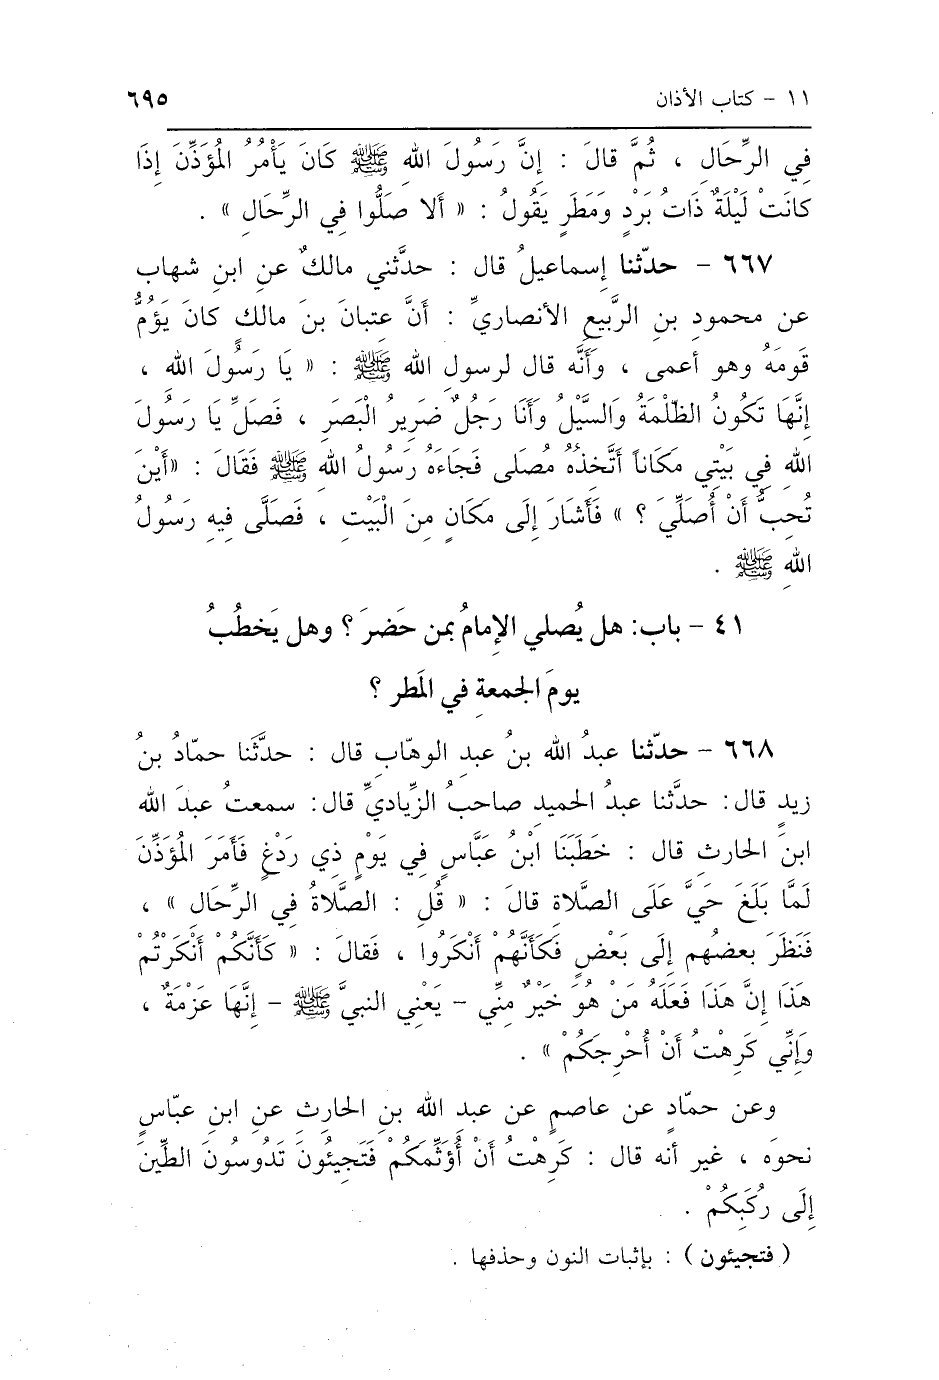 ١١ - كتاب الأذان ٦٩٥
فِي الرِّحَالِ ، ثُمَّ قالَ : إنَّ رَسُولَ اللهِ ﷺ كَانَ يَأْمُرُ الْمُؤَذِّنَ إذَا
كانَتْ لَيْلَةٌ ذَاتُ بَرْدٍ وَمَطَرٍ يَقُولُ : « ألا صَلُّوا في الرِّحَالِ » .
٦٦٧ - حدّثنا إسماعيلُ قال : حدَّثني مالكٌ عنِ ابنِ شهاب
عن محمودِ بنِ الرَّبيعِ الأنصاريِّ : أَنَّ عتبانَ بنَ مالكٍ كانَ يَؤُمُّ
قَومَهُ وهو أعمى ، وَأَنَّه قال لرسولِ اللهِ ﷺ : « يَا رَسُولَ الله ،
إنَّهَا تَكُونُ الظُّلْمَةُ وَالسَّيْلُ وَأَنَا رَجُلٌ ضَرِيرُ الْبَصَرِ ، فَصَلِّ يَا رَسُولَ
اللهِ فِي بَيْتِي مَكَاناً أَتَّخِذُهُ مُصَلى فَجاءَهُ رَسُولُ اللهِ ﷺ فَقَالَ : «أَيْنَ
تُحِبُّ أَنْ أُصَلِّيَ ؟ » فَأَشَارَ إلَى مَكَانٍ مِنَ الْبَيْتِ ، فَصَلَّى فِيهِ رَسُولُ
اللهِ ﷺ .
٤١ - باب: هل يُصلي الإمامُ بمن حَضرَ ؟ وهل يَخطُبُ
يومَ الجمعةِ في المَطر ؟
٦٦٨ - حدّثنا عبدُ اللهِ بنُ عبدِ الوهّابِ قال : حدَّثَنا حمّادُ بنُ
زيدٍ قال: حدَّثنا عبدُ الحميدِ صاحبُ الزِّياديِّ قال: سمعتُ عبدَ الله
ابنَ الحارثِ قال : خَطَبَنَا ابْنُ عَبَّاسٍ فِي يَوْمٍ ذِي رَدْغٍ فَأَمَرَ الْمُؤَذِّنَ
لَمَّا بَلَغَ حَيَّ عَلَى الصَّلاة قالَ : « قُلِ : الصَّلاةُ فِي الرِّحَالِ » ،
فَنَظَرَ بعضُهم إلَى بَعْضٍ فَكَأَنَّهُمْ أَنْكَرُوا ، فَقالَ : « كَأَنَّكُمْ أَنْكَرْتُمْ
هَذَا إنَّ هَذَا فَعَلَهُ مَنْ هُوَ خَيْرٌ مِنِّي - يَعْنِي النبيَّ ﷺ - إنَّهَا عَزْمَةٌ ،
وَإنِّي كَرِهْتُ أَنْ أُحْرِجَكُمْ » .
وعن حمّادٍ عن عاصمٍ عن عبدِ اللهِ بنِ الحارثِ عنِ ابنِ عبّاسٍ
نحوَه ، غير أنه قال : كَرِهْتُ أَنْ أُؤَثِّمَكُمْ فَتَجِيئُونَ تَدُوسُونَ الطِّينَ
إلَى رُكَبِكُمْ .
( فتجيئون ) : بإثبات النون وحذفها .